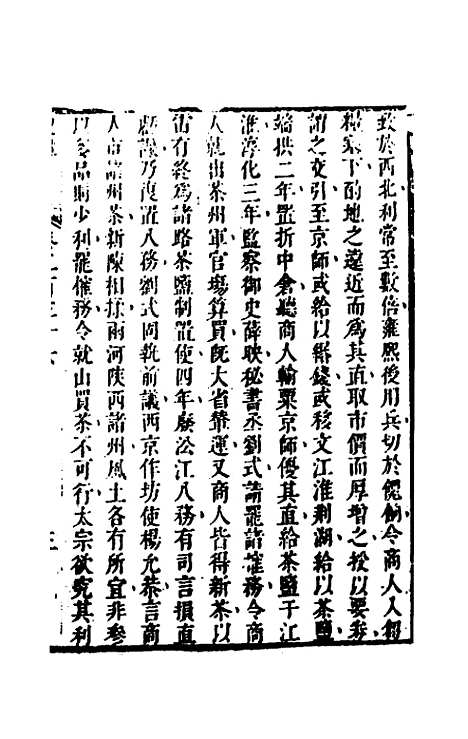 致於西北利常至數倍雍熙後用兵切於餽餉令商人入芻
糧塞下酌地之遠近而爲其直取市價而厚增之授以要券
謂之交引至京師或給以緡錢或移文江淮荆湖給以茶鹽
端拱二年置折中倉聽商人輸粟京師優其直給茶鹽于江
淮淳化三年監察御史薛映秘書丞劉式請罷諸榷務令商
人就出茶州軍官塲算買既大省輦運又商人皆得新茶以
雷有終爲諸路茶鹽制置使四年廢沿江八務有司言損直
虧課乃復置八務劉式固執前議西京作坊使楊允恭言商
人市諸州茶新陳相揉兩河陝西諸州風土各有所宜非參
以多品則少利罷榷務令就山買茶不可行太宗欲究其利